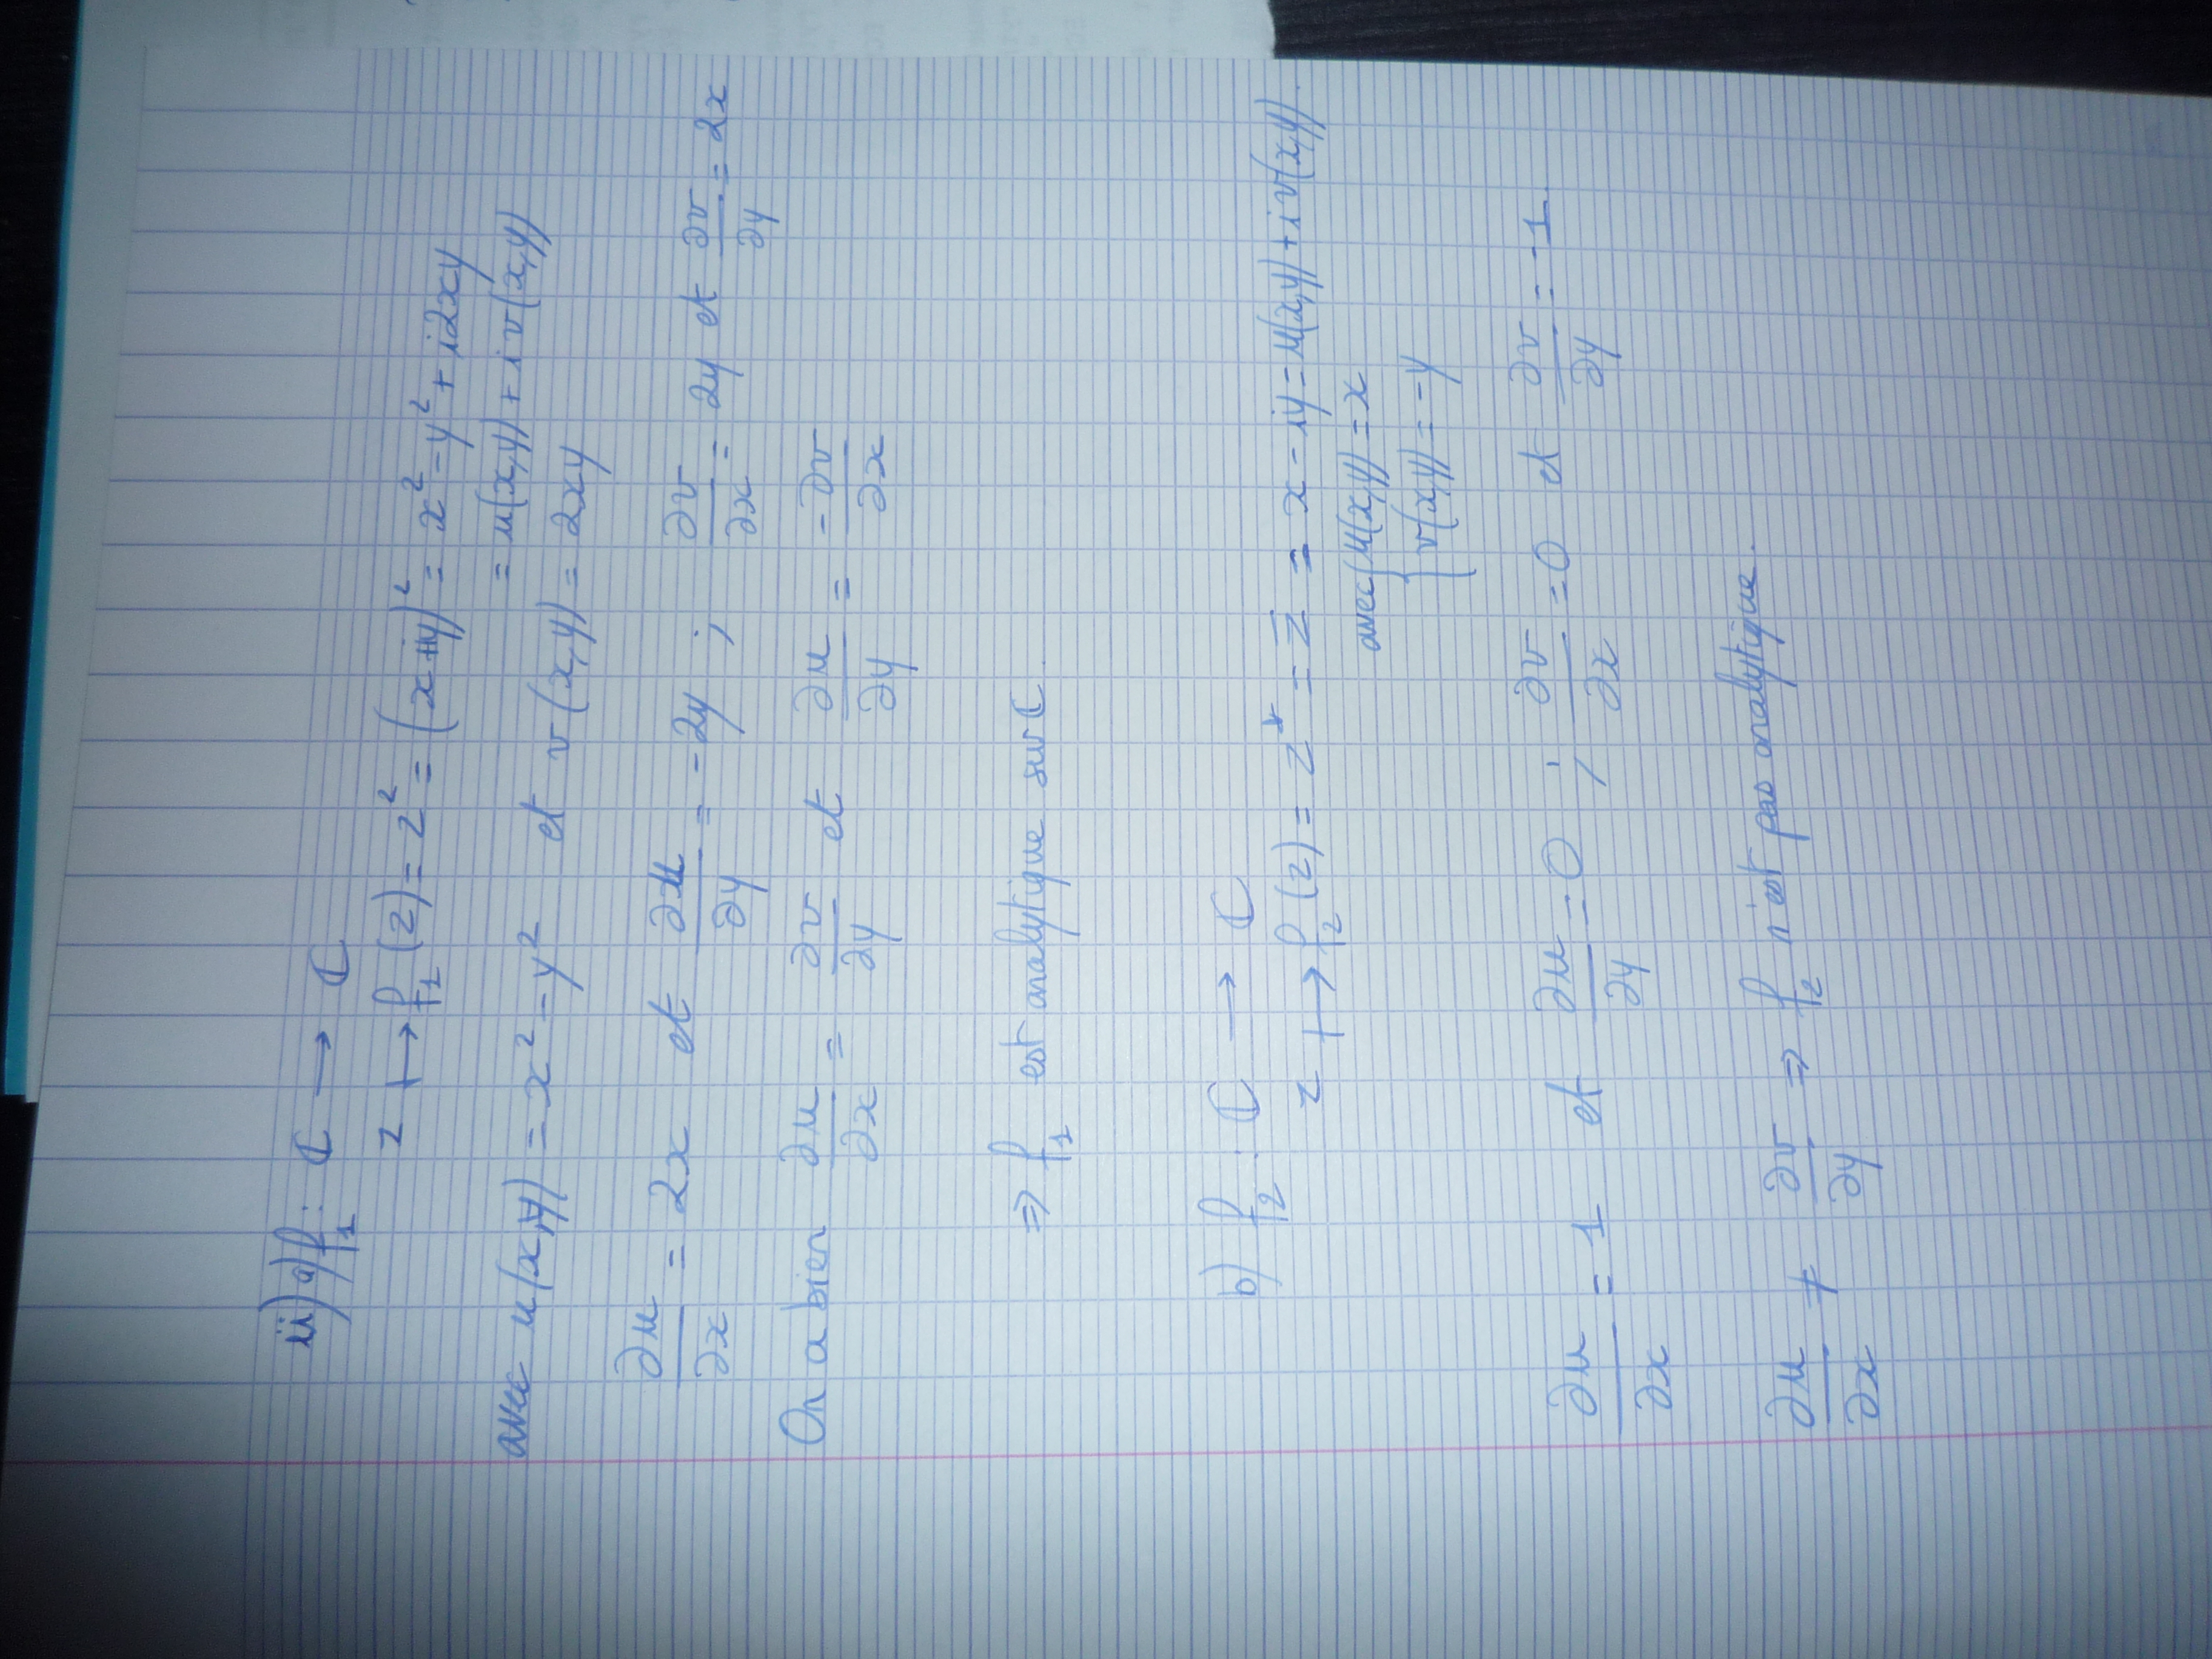 ii) a) f₁ : ℂ → ℂ
z ↦ f₁(z) = z² = (x+iy)² = x² - y² + i2xy
= u(x,y) + i v(x,y)
avec u(x,y) = x² - y² et v(x,y) = 2xy
∂u/∂x = 2x et ∂u/∂y = -2y ; ∂v/∂x = 2y et ∂v/∂y = 2x
On a bien ∂u/∂x = ∂v/∂y et ∂u/∂y = -∂v/∂x
⇒ f₁ est analytique sur ℂ
b) f₂ : ℂ → ℂ
z ↦ f₂(z) = z* = z̄ = x - iy = u(x,y) + i v(x,y).
avec { u(x,y) = x
v(x,y) = -y
∂u/∂x = 1 et ∂u/∂y = 0 ; ∂v/∂x = 0 et ∂v/∂y = -1.
∂u/∂x ≠ ∂v/∂y ⇒ f₂ n'est pas analytique.